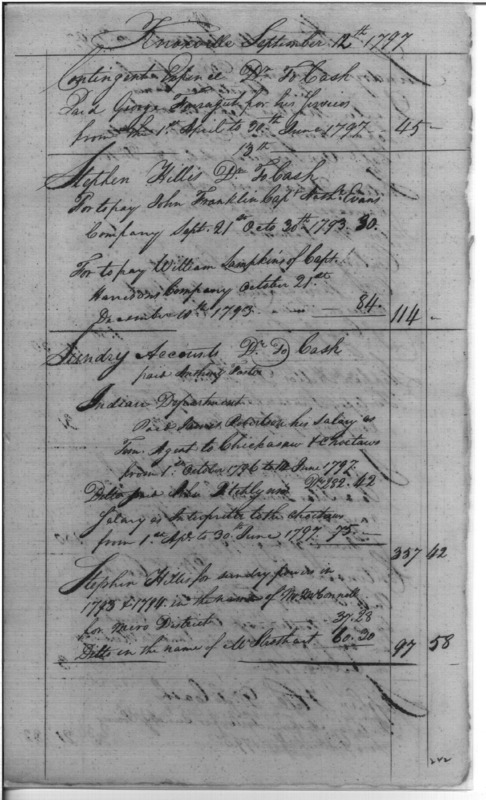 Knoxville September 12th 1797
Contingent Expence Dr To Cash
Paid George Farragut for his Services
from the 1st April to 30th June 1797 45 —
13th
Stephen Hillis Dr To Cash
For to pay John Franklin Capt Nathl Evans
Company Sept. 21st Octo 30th 1793. 30.
For to pay William Lumpkins of Capt
Harrisons Company October 21st
December 10th 1793. — 84. 114 —
Sundry Accounts Dr To Cash
paid Anthony Foster
Indian Department
Paid James Robertson his Salary as
Tem. Agent to Chickasaw & Choctaws
from 1st October 1796 to 14 June 1797.
Ditto paid John Pitchlynn Drs 282. 42
Salary as Interpreter to the Choctaws
from 1st Apl to 30th June 1797. 75. —
357 42
Stephen Hillis for sundry in
1793 & 1794. in the name of McConnell
for Miro District 37.28
Ditto in the name of 60.30 97 58
242